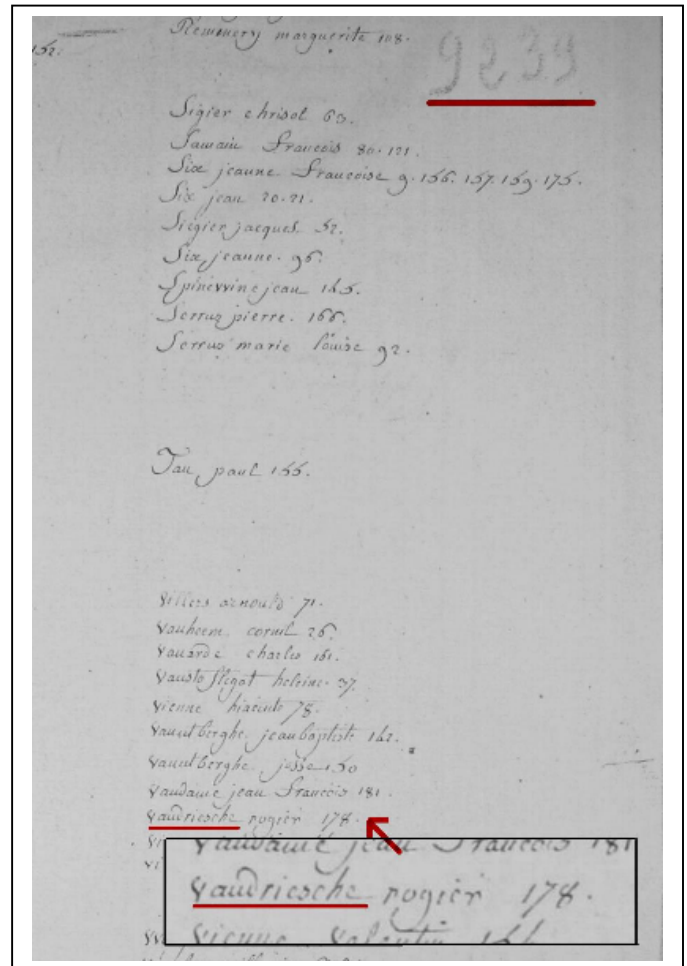 152.
Remmery marguerite 108.
9239
Sigier chrisol 63.
Samain Francois 80. 121.
Six jeanne Francoise 9. 156. 157. 159. 175.
Six jean 20. 21.
Siegier jacques 52.
Six jeanne. 96.
Spinevvine jean 165.
Serruz pierre. 166.
Serruz marie louise 92.
Tau paul 155.
Villers arnould 71.
Vanheem cornil 26.
Vanarde charles 161.
Vausto flegat heleine. 37.
Vienne hiacinte 78.
Vanutberghe jean baptiste 142.
Vanutberghe josse 150
Vandame jean Francois 181.
Vandriesche rogier 178.
Vandame jean Francois 181
Vandriesche rogier 178.
Vienne Valentin